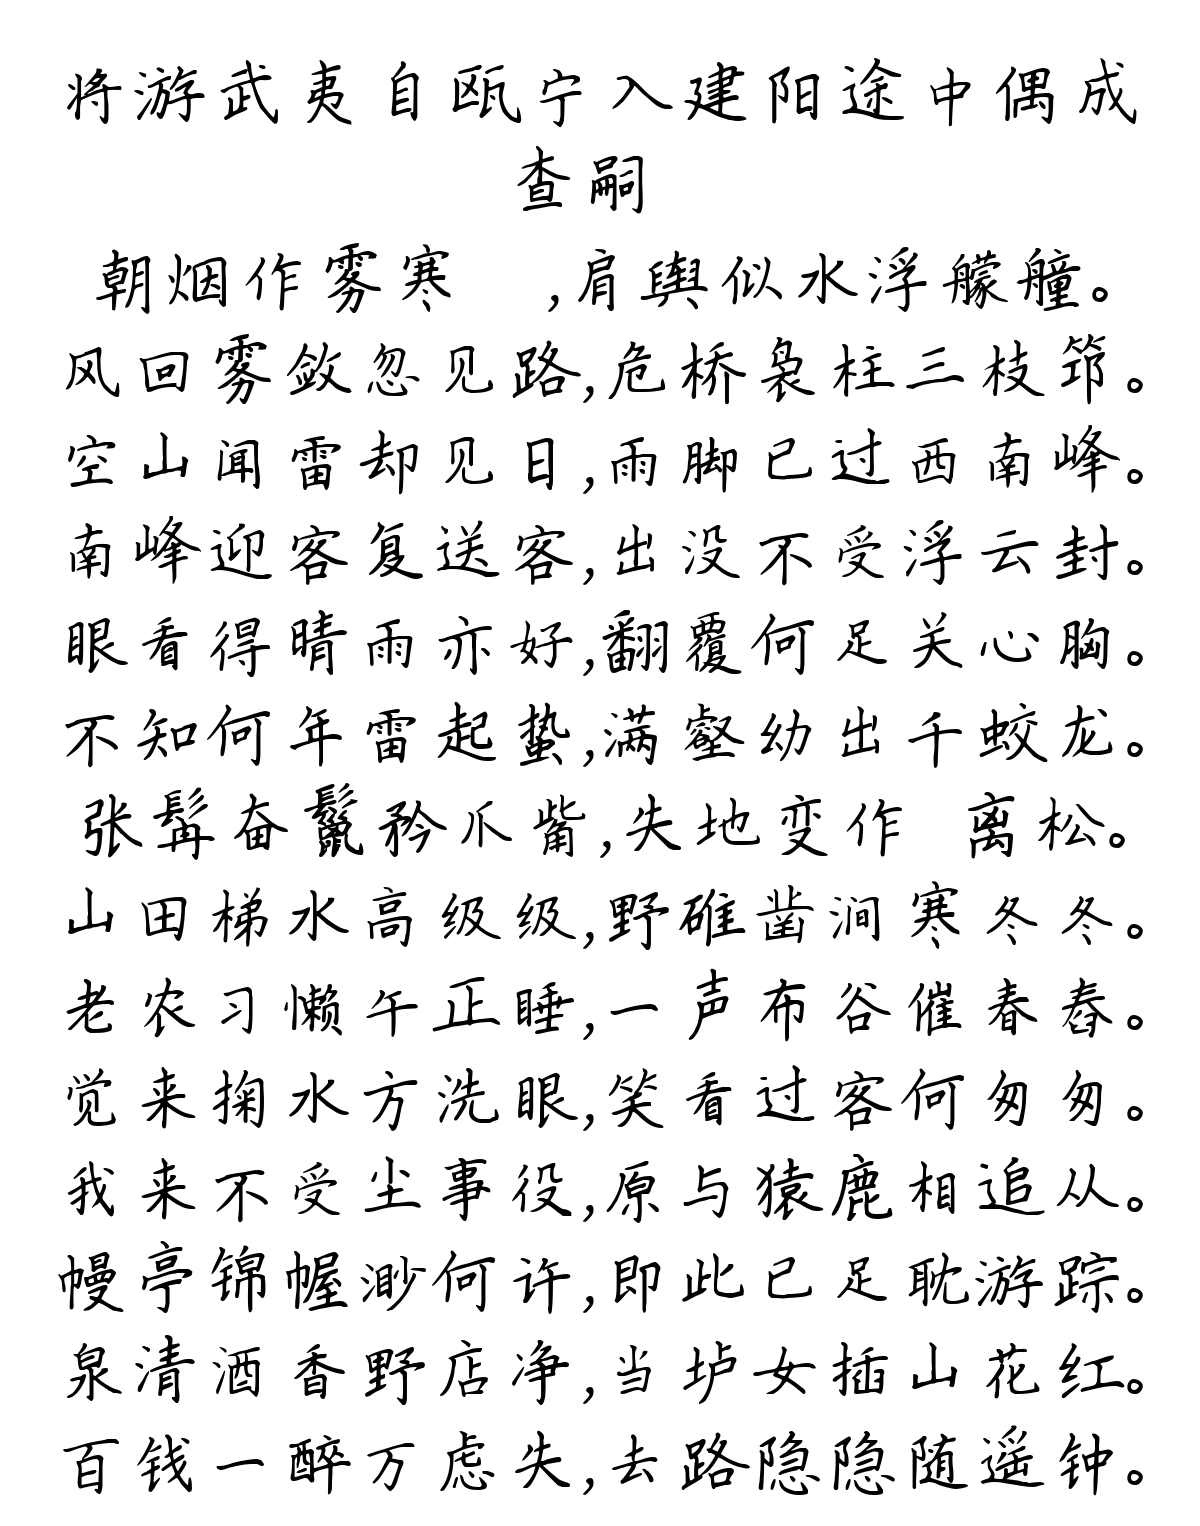 将游武夷自瓯宁入建阳途中偶成
查嗣
朝烟作雾寒 ,肩舆似水浮艨艟。
风回雾敛忽见路,危桥袅柱三枝筇。
空山闻雷却见日,雨脚已过西南峰。
南峰迎客复送客,出没不受浮云封。
眼看得晴雨亦好,翻覆何足关心胸。
不知何年雷起蛰,满壑幼出千蛟龙。
张髯奋鬣矜爪觜,失地变作 离松。
山田梯水高级级,野碓凿涧寒冬冬。
老农习懒午正睡,一声布谷催春舂。
觉来掬水方洗眼,笑看过客何匆匆。
我来不受尘事役,原与猿鹿相追从。
幔亭锦幄渺何许,即此已足耽游踪。
泉清酒香野店净,当垆女插山花红。
百钱一醉万虑失,去路隐隐随遥钟。